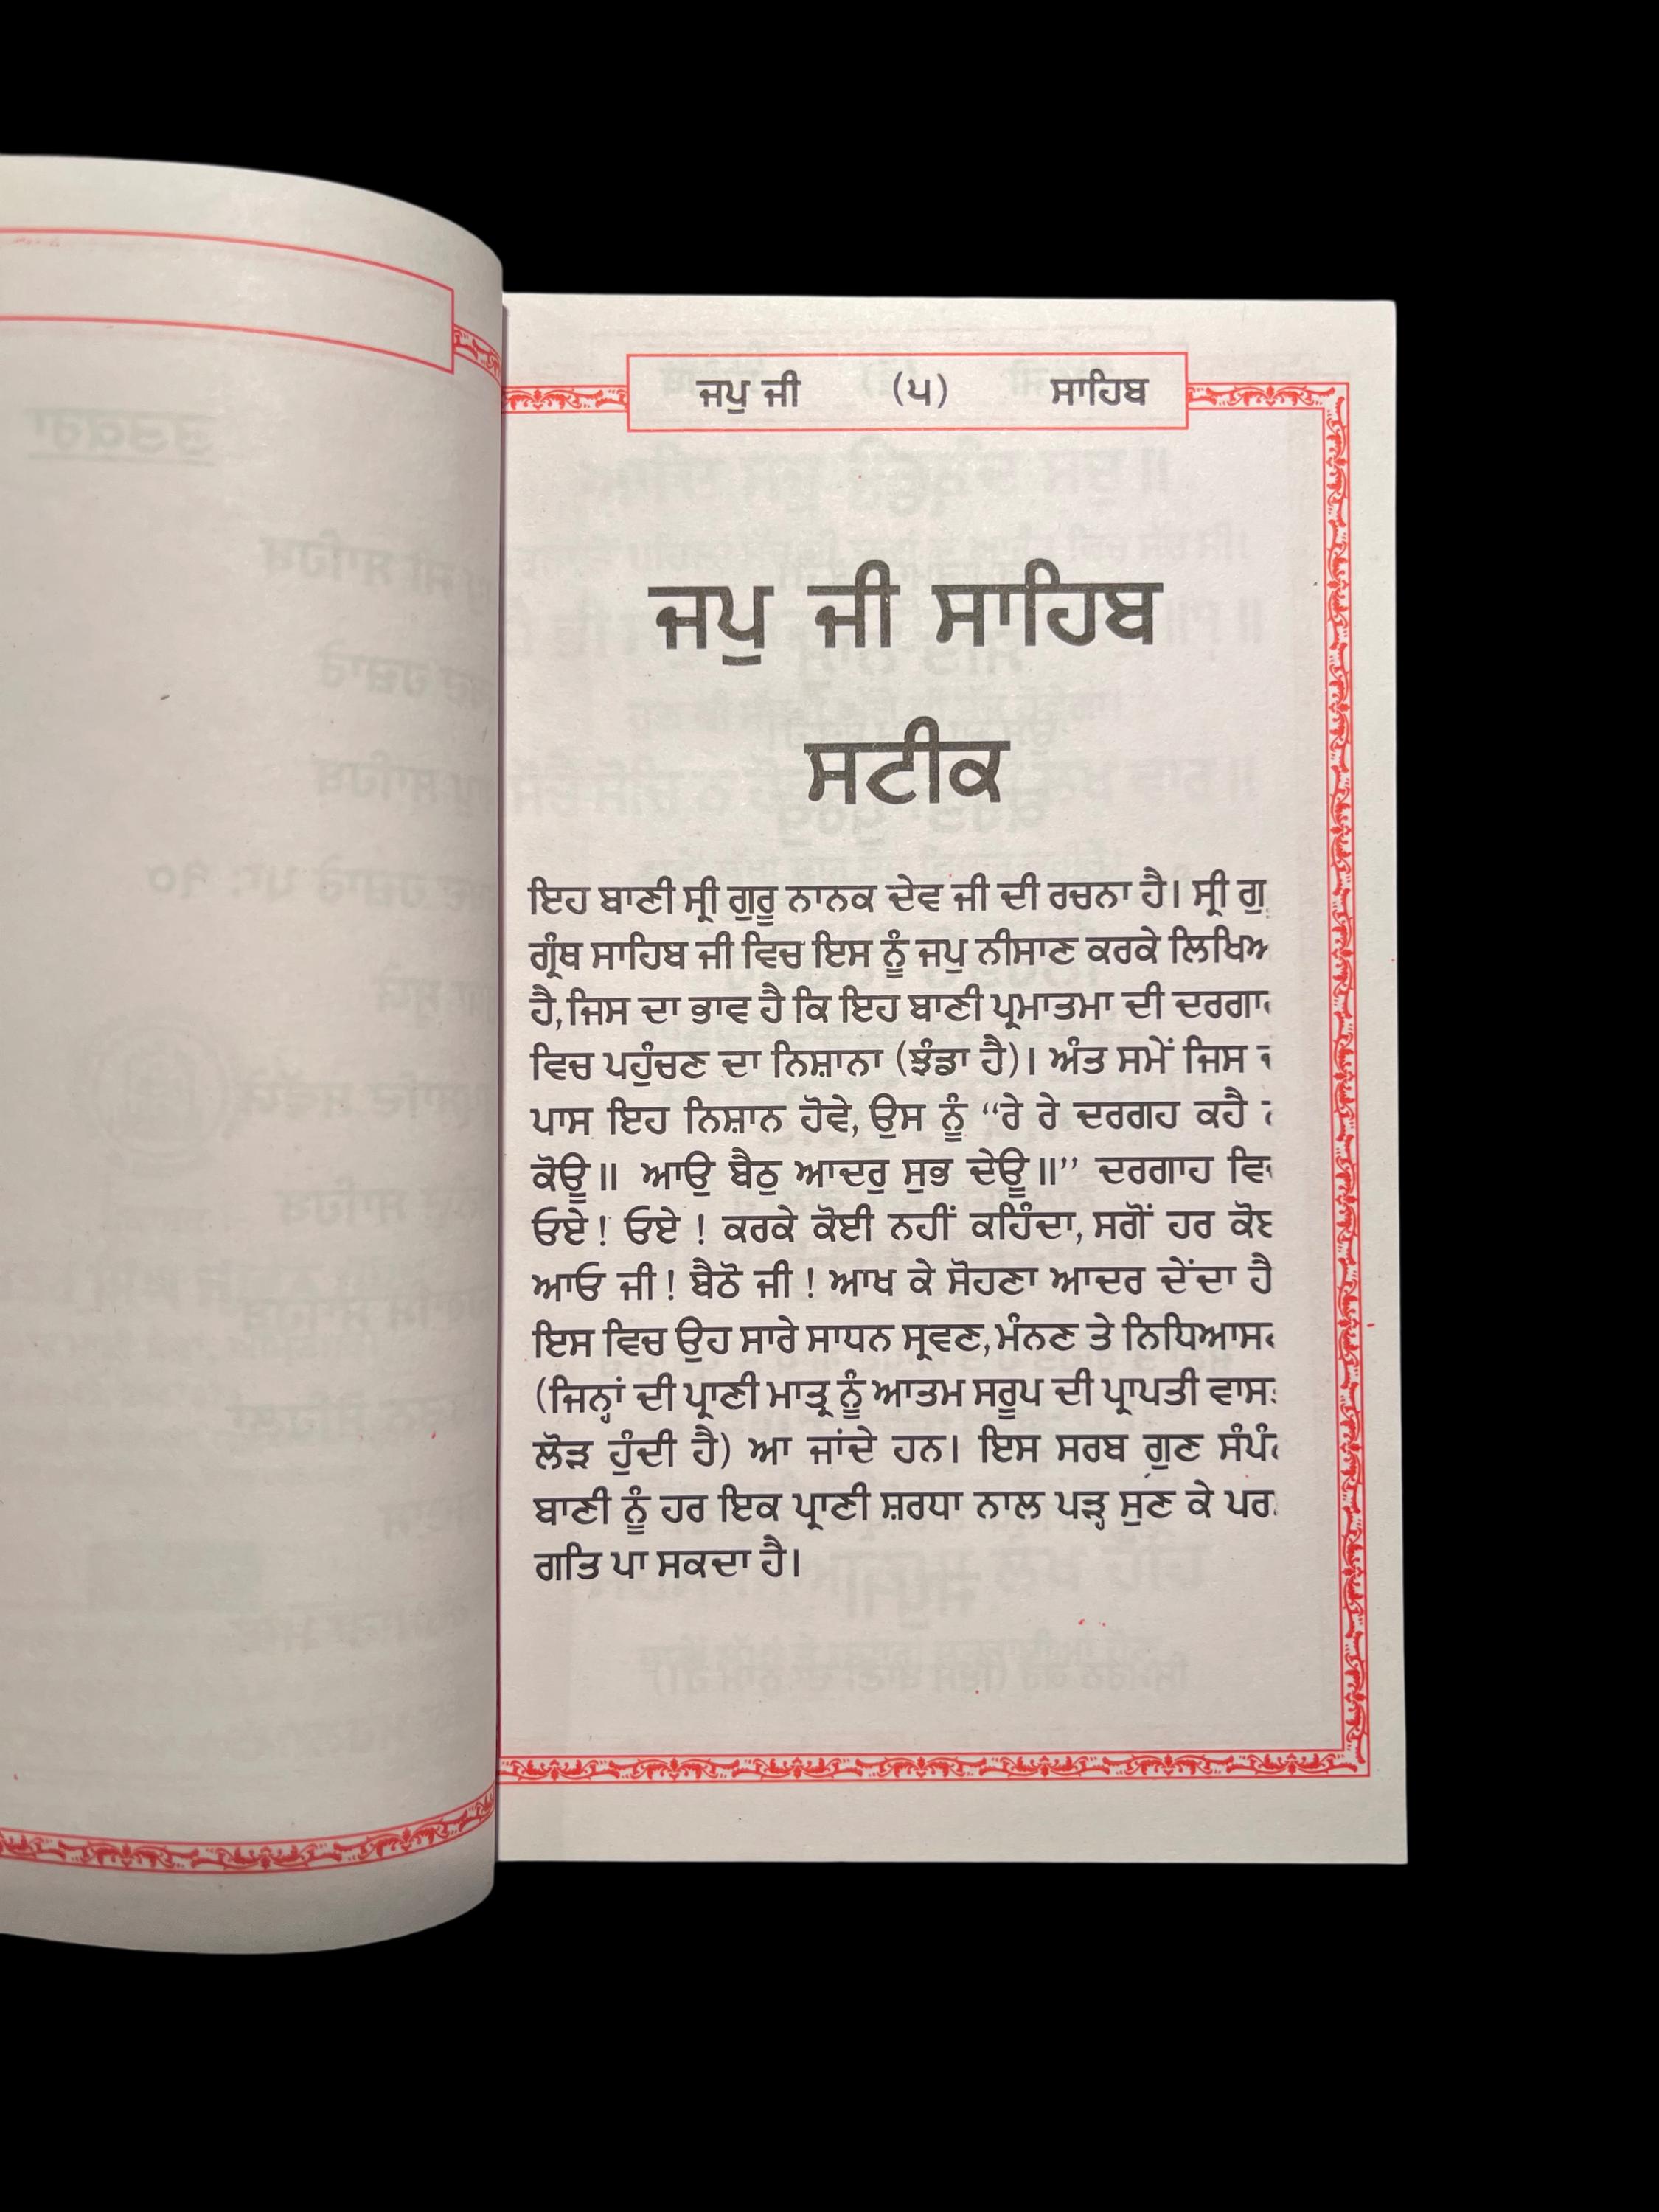 ਜਪੁ ਜੀ (੫) ਸਾਹਿਬ
ਜਪੁ ਜੀ ਸਾਹਿਬ
ਸਟੀਕ
ਇਹ ਬਾਣੀ ਸ੍ਰੀ ਗੁਰੂ ਨਾਨਕ ਦੇਵ ਜੀ ਦੀ ਰਚਨਾ ਹੈ। ਸ੍ਰੀ ਗੁ
ਗ੍ਰੰਥ ਸਾਹਿਬ ਜੀ ਵਿਚ ਇਸ ਨੂੰ ਜਪੁ ਨੀਸਾਣ ਕਰਕੇ
ਹੈ, ਜਿਸ ਦਾ ਭਾਵ ਹੈ ਕਿ ਇਹ ਬਾਣੀ ਪ੍ਰਮਾਤਮਾ ਦੀ
ਵਿਚ ਪਹੁੰਚਣ ਦਾ ਨਿਸ਼ਾਨਾ (ਝੰਡਾ ਹੈ)। ਅੰਤ ਸਮੇਂ ਜਿਸ
ਪਾਸ ਇਹ ਨਿਸ਼ਾਨ ਹੋਵੇ, ਉਸ ਨੂੰ “ਰੇ ਰੇ ਦਰਗਹ ਕਹੈ
ਕੋਊ॥ ਆਉ ਬੈਠੁ ਆਦਰੁ ਸੁਭ ਦੇਊ॥” ਦਰਗਾਹ
ਓਏ! ਓਏ! ਕਰਕੇ ਕੋਈ ਨਹੀਂ ਕਹਿੰਦਾ, ਸਗੋਂ ਹਰ
ਆਓ ਜੀ! ਬੈਠੋ ਜੀ! ਆਖ ਕੇ ਸੋਹਣਾ ਆਦਰ ਦੇਂਦਾ ਹੈ
ਇਸ ਵਿਚ ਉਹ ਸਾਰੇ ਸਾਧਨ ਸ੍ਰਵਣ, ਮੰਨਣ ਤੇ
(ਜਿਨ੍ਹਾਂ ਦੀ ਪ੍ਰਾਣੀ ਮਾਤ੍ਰ ਨੂੰ ਆਤਮ ਸਰੂਪ ਦੀ ਪ੍ਰਾਪਤੀ
ਲੋੜ ਹੁੰਦੀ ਹੈ) ਆ ਜਾਂਦੇ ਹਨ। ਇਸ ਸਰਬ ਗੁਣ
ਬਾਣੀ ਨੂੰ ਹਰ ਇਕ ਪ੍ਰਾਣੀ ਸ਼ਰਧਾ ਨਾਲ ਪੜ੍ਹ ਸੁਣ ਕੇ ਪਰ
ਗਤਿ ਪਾ ਸਕਦਾ ਹੈ।